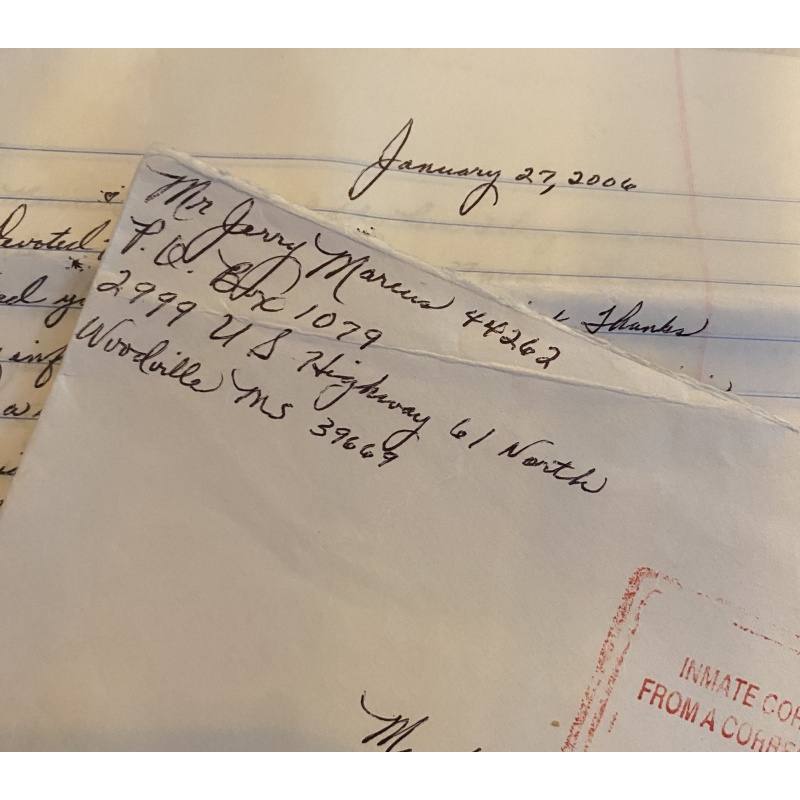 January 27, 2006
Mr Jerry Marcus 44262
P.O. Box 1079
2999 U S Highway 61 North
Woodville Ms 39669
Devoted
Thanks
INMATE COR
FROM A CORRE